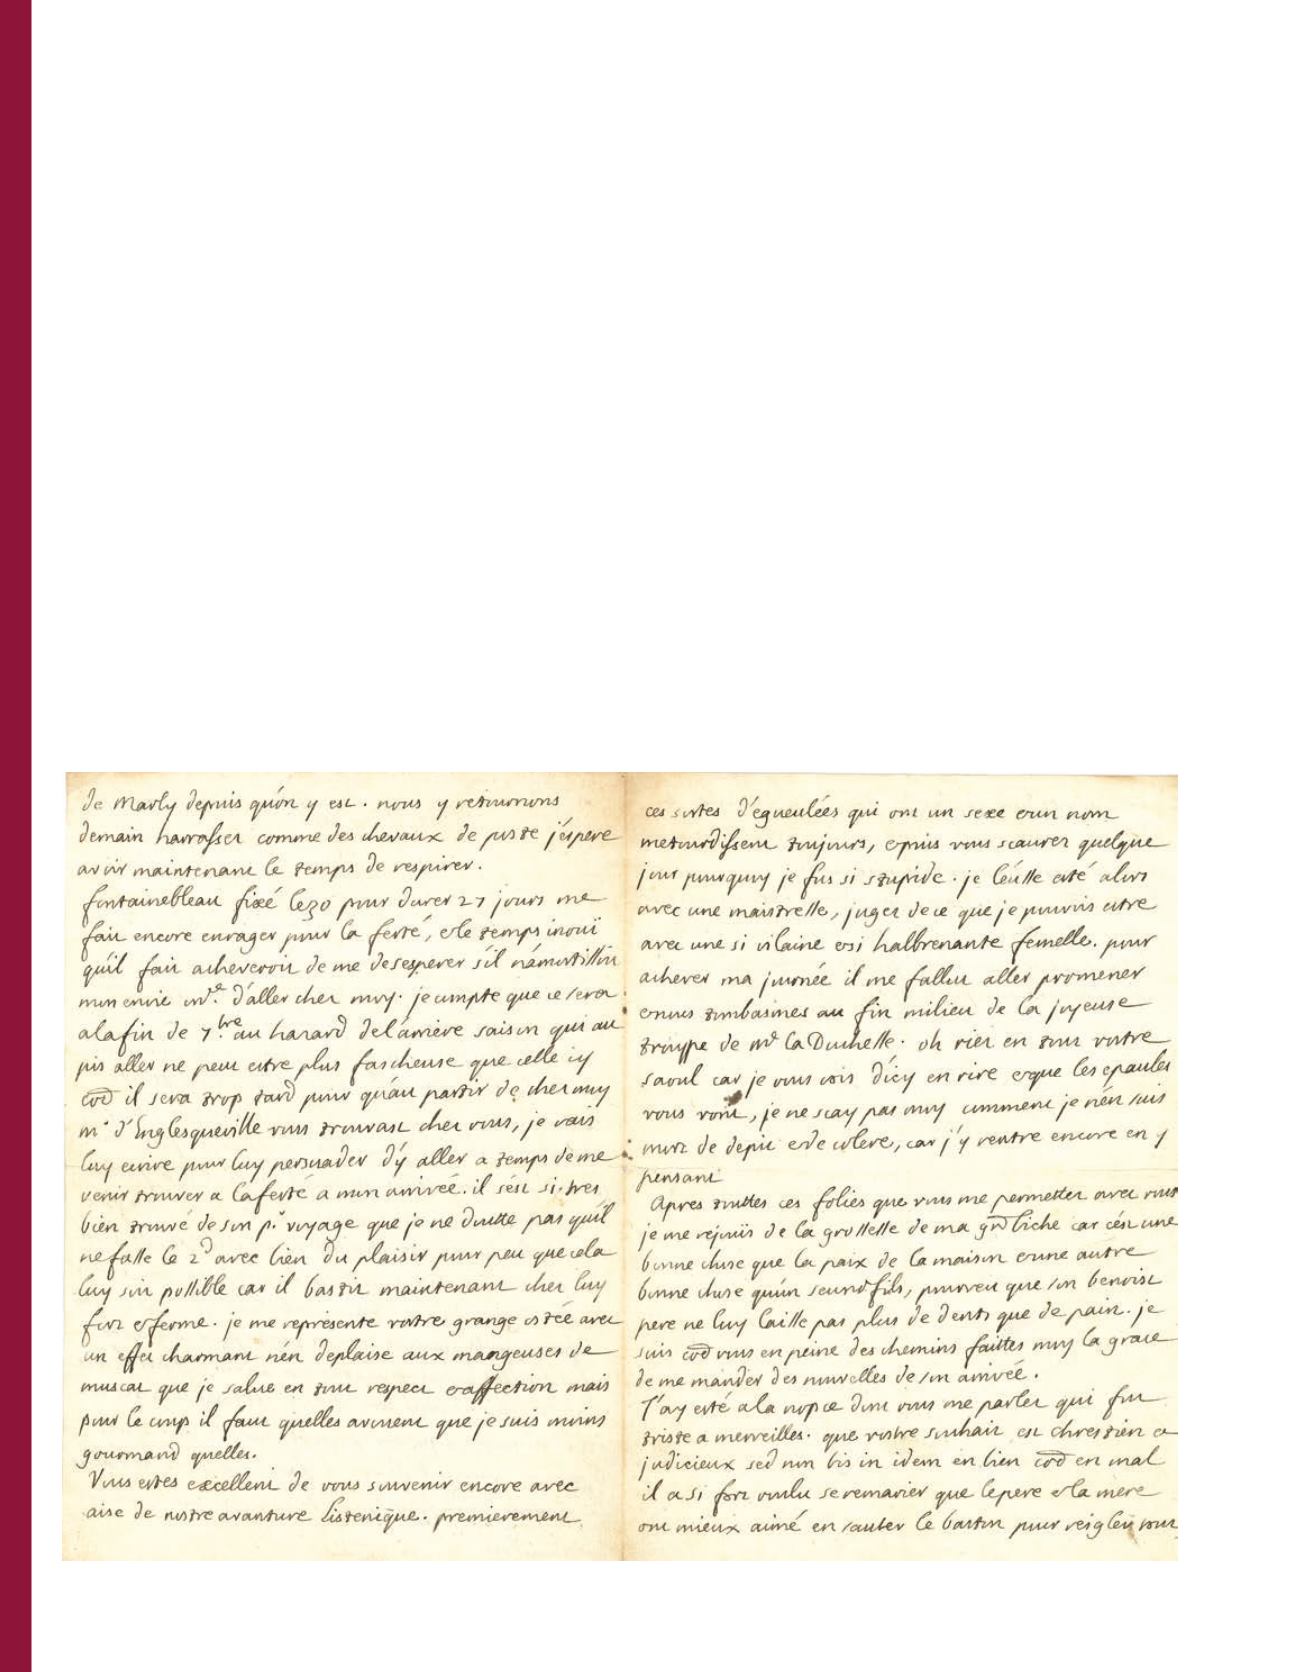 de Marly depuis qu'on y est. nous y retournons
demain harrasser comme des chevaux de poste j'espere
avoir maintenant le temps de respirer.
fontainebleau fixé le 30 pour durer 27 jours me
fait encore enrager pour la ferté, et le temps inouï
qu'il fait acheveroit de me desesperer s'il n'amortissoit
mon envie d'aller chez moy. je compte que ce sera
a la fin de 7.bre au hazard de l'arriere saison qui au
pis aller ne peut estre plus fascheuse que celle icy
il sera trop tard pour qu'au partir de chez moy
mr d'Englesqueville vous trouvast chez vous, je vais
luy ecrire pour luy persuader d'y aller a temps de me
venir trouver a la ferté a mon arrivée. il s'est si tres
bien trouvé de son pr voyage que je ne doutte pas qu'il
ne fasse le 2d avec bien du plaisir pour peu que cela
luy soit possible car il bastit maintenant chez luy
fort et ferme. je me represente vostre grange ostée avec
un effet charmant n'en deplaise aux mangeuses de
muscat que je salue en tout respect et affection mais
pour le coup il faut quelles avouent que je suis moins
gourmand quelles.
Vous estes excellent de vous souvenir encore avec
aise de nostre avanture listenique. premierement
ces sortes d'egueulées qui ont un sexe et un nom
m'etourdissent toujours, et puis vous scaurez quelque
jour pourquoy je fus si stupide. je l'eusse esté alors
avec une maistresse, jugez de ce que je pouvois estre
avec une si vilaine et si halbrenante femelle. pour
achever ma journée il me fallut aller promener
et nous tombasmes au fin milieu de la joyeuse
trouppe de Me la Duchesse. oh riez en tout vostre
saoul car je vous vois d'icy en rire et que les epaules
vous vont, je ne scay pas moy comment je n'en suis
mort de depit et de colere, car j'y rentre encore en y
pensant
Apres touttes ces folies que vous me permettez avec vous
je me rejouis de la grossesse de ma gnd biche car c'est une
bonne chose que la paix de la maison et une autre
bonne chose qu'un second fils, pourveu que son benoist
pere ne luy laisse pas plus de dents que de pain. je
suis vous en peine des chemins faittes moy la grace
de me mander des nouvelles de son arrivée.
J'ay esté a la nopce dont vous me parlez qui fut
triste a merveilles. que vostre souhait est chrestien et
judicieux sed non bis in idem en bien en mal
il a si fort voulu se remarier que le pere et la mere
ont mieux aimé en sauter le baston pour